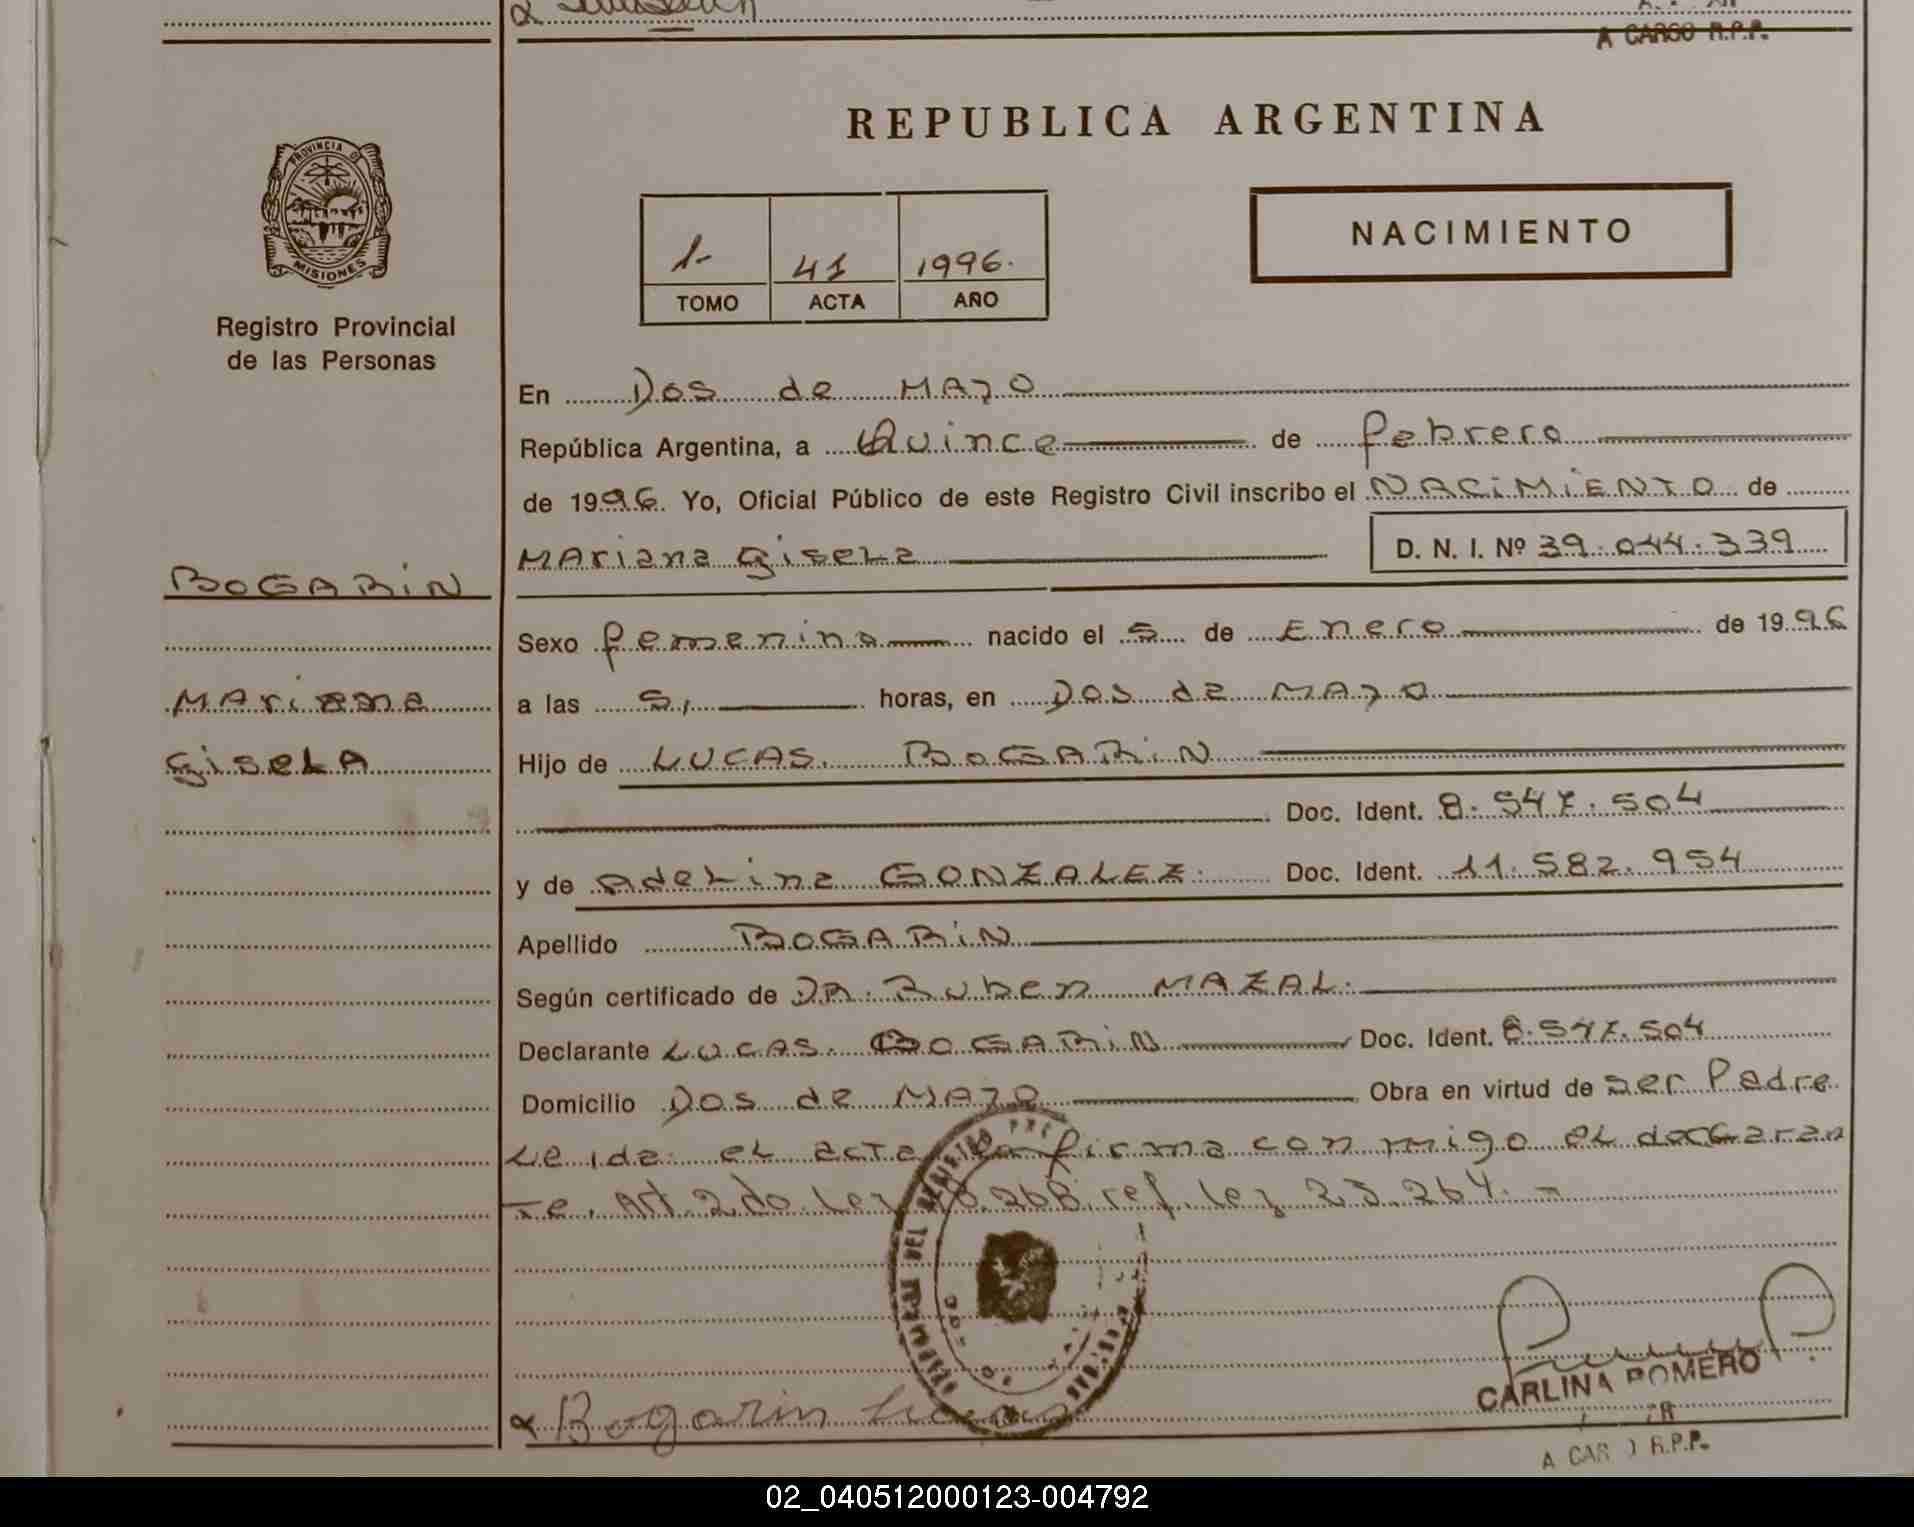 A CARGO R.P.P.
REPUBLICA ARGENTINA
PROVINCIA DE
MISIONES
Registro Provincial
de las Personas
1- 41 1996.
TOMO ACTA AÑO
NACIMIENTO
En Dos de MAyO
República Argentina, a Quince de febrero
de 1996. Yo, Oficial Público de este Registro Civil inscribo el NACiMiENTO de
MAriana GiseLa D. N. I. Nº 39.044.339
BOGARiN
Sexo femenino nacido el 5 de Enero de 1996
MAriana
a las 5, horas, en Dos de MAyO
GiseLA
Hijo de LUCAS. BOGARiN
Doc. Ident. 8.547.504
y de AdeLina GONZALEZ. Doc. Ident. 11.582.954
Apellido BOGARiN
Según certificado de DR. Ruben MAZAL.
Declarante LUCAS. BOGARiN Doc. Ident. 8.547.504
Domicilio Dos de MAyO Obra en virtud de ser Padre
Leida eL acta La firma con migo eL decLaran
Te. Art. 2do. Ley 18.268. ref. ley 23.264. -
Bogarin Lucas
CARLINA ROMERO
A CAR O R.P.P.
02_040512000123-004792